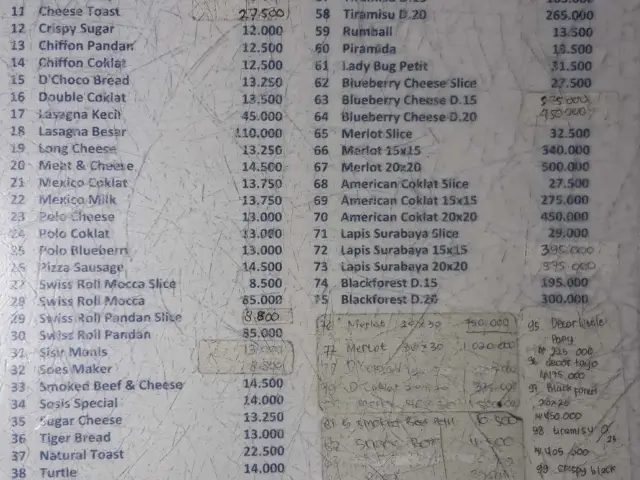 11 Cheese Toast 27.500
12 Crispy Sugar 12.000
13 Chiffon Pandan 12.500
14 Chiffon Coklat 12.500
15 D'Choco Bread 13.250
16 Double Coklat 13.500
17 Lasagna Kecil 45.000
18 Lasagna Besar 110.000
19 Long Cheese 13.250
20 Meat & Cheese 14.500
21 Mexico Coklat 13.750
22 Mexico Milk 13.750
23 Polo Cheese 13.000
24 Polo Coklat 13.000
25 Polo Blueberri 13.000
26 Pizza Sausage 14.500
27 Swiss Roll Mocca Slice 8.500
28 Swiss Roll Mocca 85.000
29 Swiss Roll Pandan Slice 8.800
30 Swiss Roll Pandan 85.000
31 Sisir Manis 13.000
32 Soes Maker
33 Smoked Beef & Cheese 14.500
34 Sosis Special 14.000
35 Sugar Cheese 13.250
36 Tiger Bread 13.000
37 Natural Toast 22.500
38 Turtle 14.000
58 Tiramisu D.20 265.000
59 Rumball 13.500
60 Piramida 18.500
61 Lady Bug Petit 31.500
62 Blueberry Cheese Slice 27.500
63 Blueberry Cheese D.15
64 Blueberry Cheese D.20 450.000
65 Merlot Slice 32.500
66 Merlot 15x15 340.000
67 Merlot 20x20 500.000
68 American Coklat Slice 27.500
69 American Coklat 15x15 275.000
70 American Coklat 20x20 450.000
71 Lapis Surabaya Slice 29.000
72 Lapis Surabaya 15x15 395.000
73 Lapis Surabaya 20x20 575.000
74 Blackforest D.15 195.000
75 Blackforest D.20 300.000
76 Merlot 750.000
77 Merlot 30x30 1.020.000
95 Decor
225.000
96 decor
97 Black
20x20
450.000
98 tiramisu
405.000
99 crispy black